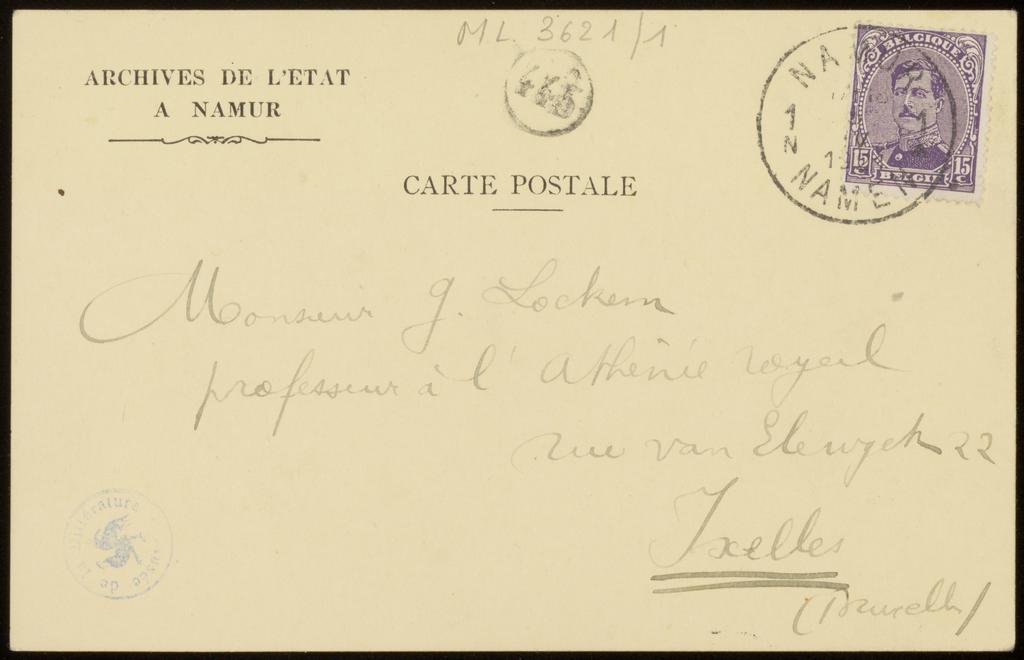 ML 3621/1
ARCHIVES DE L'ETAT
A NAMUR
446
NAMUR
1 1
N
19
NAMEN
BELGIQUE
15 C 15 C
BELGIË
CARTE POSTALE
Monsieur G. Lockem
professeur à l'Athénée royal
rue van Elewyck 22
Ixelles
(Bruxelles)
Musée de la Littérature